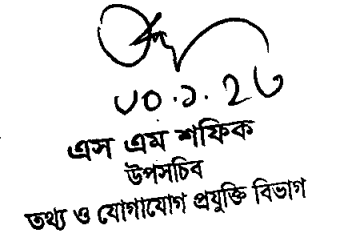 ৩০.১.২৬
এস এম শফিক
উপসচিব
তথ্য ও যোগাযোগ প্রযুক্তি বিভাগ